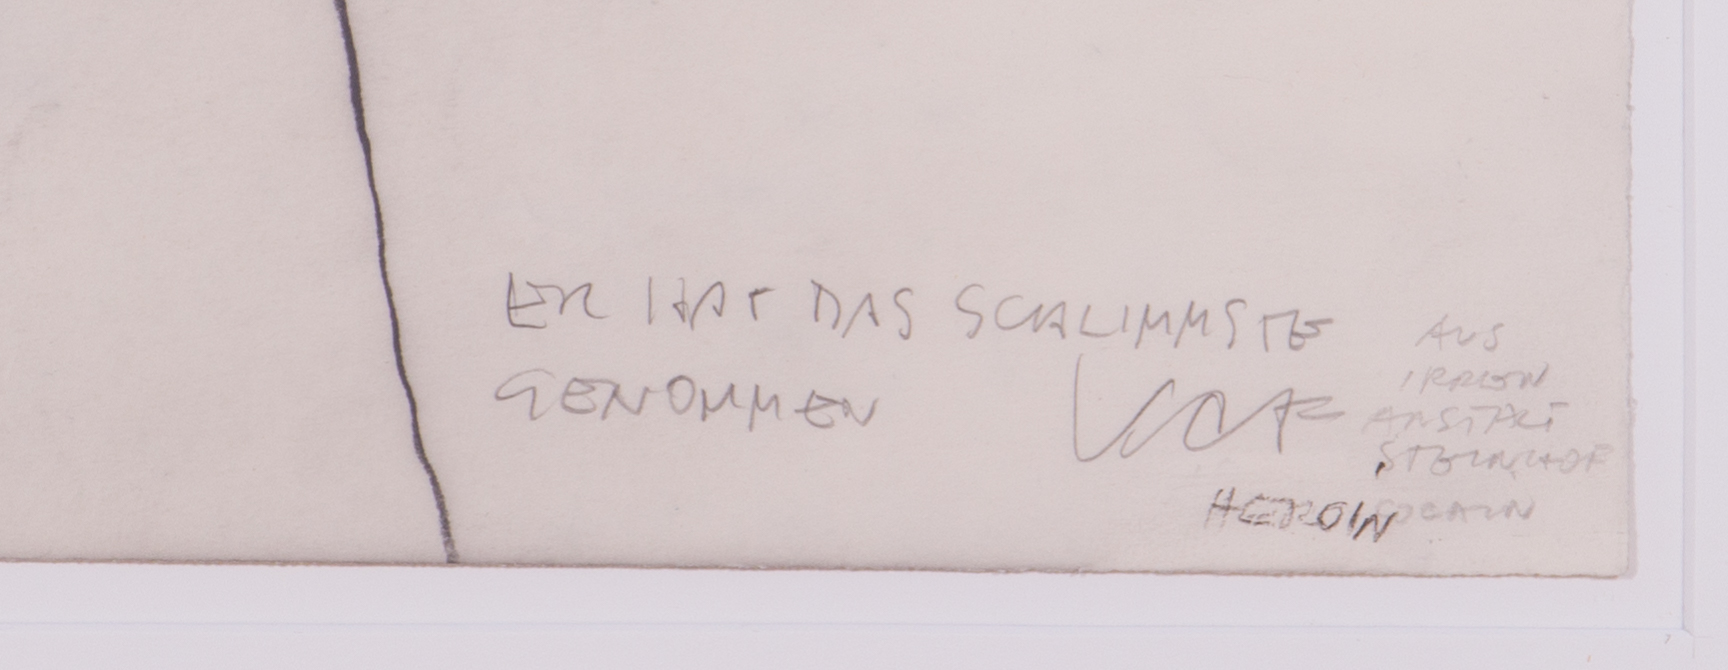 ER HAT DAS SCHLIMMSTE
GENOMMEN
AUS
IRREN
ANSTALT
STEINHOF
HEROIN COCAIN